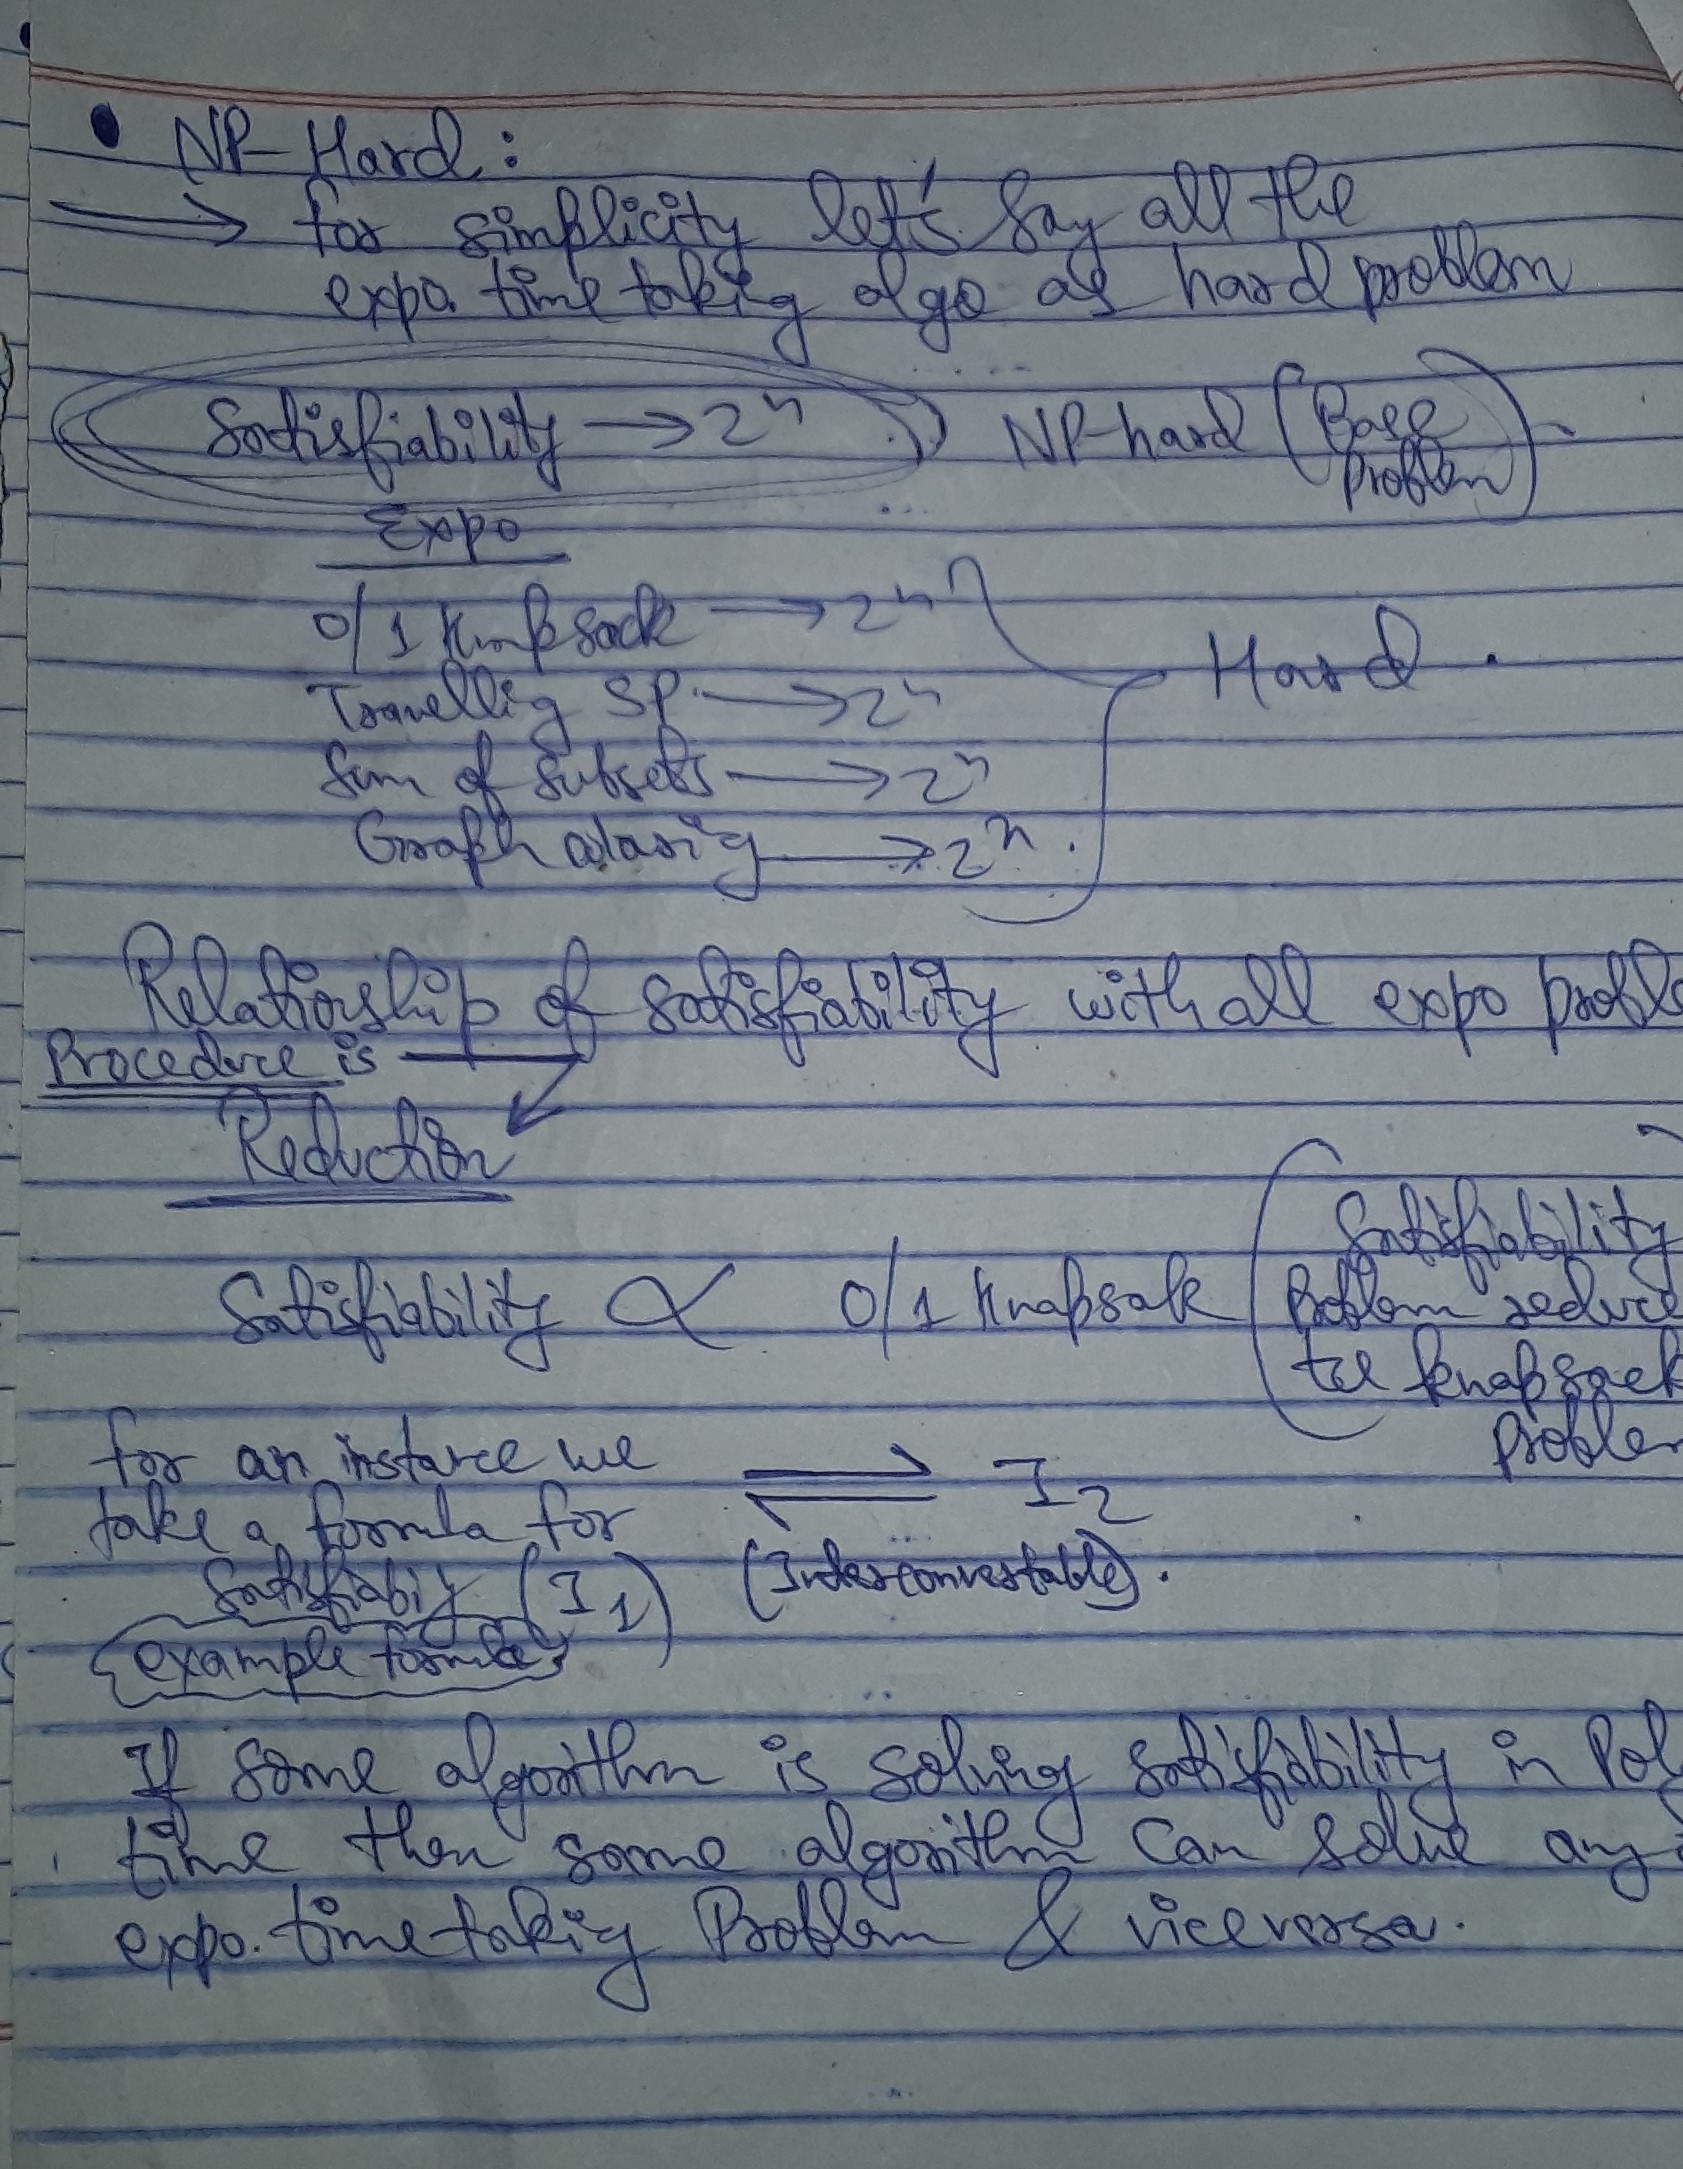 • NP-Hard:
⟹ for simplicity let's say all the
expo. time taking algo as hard problem
Satisfiability → 2ⁿ NP-hard (Base
Problem)
Expo
0/1 Knapsack → 2ⁿ
Travellig SP. → 2ⁿ
Hard.
Sum of subsets → 2ⁿ
Graph coloring → 2ⁿ.
Relationship of satisfiability with all expo proble
Procedure is
Reduction
Satisfiability ∝ 0/1 Knapsak (Satisfiability
Problem reduce
to knapsack
Problem
for an instance we ⇌ I₂
take a formula for
Satisfiabiy (I₁) (Interconvertable).
example formula
If some algorithm is solving satisfiability in Pol
time then same algorithm can solve any
expo. time takig Problem & viceversa.